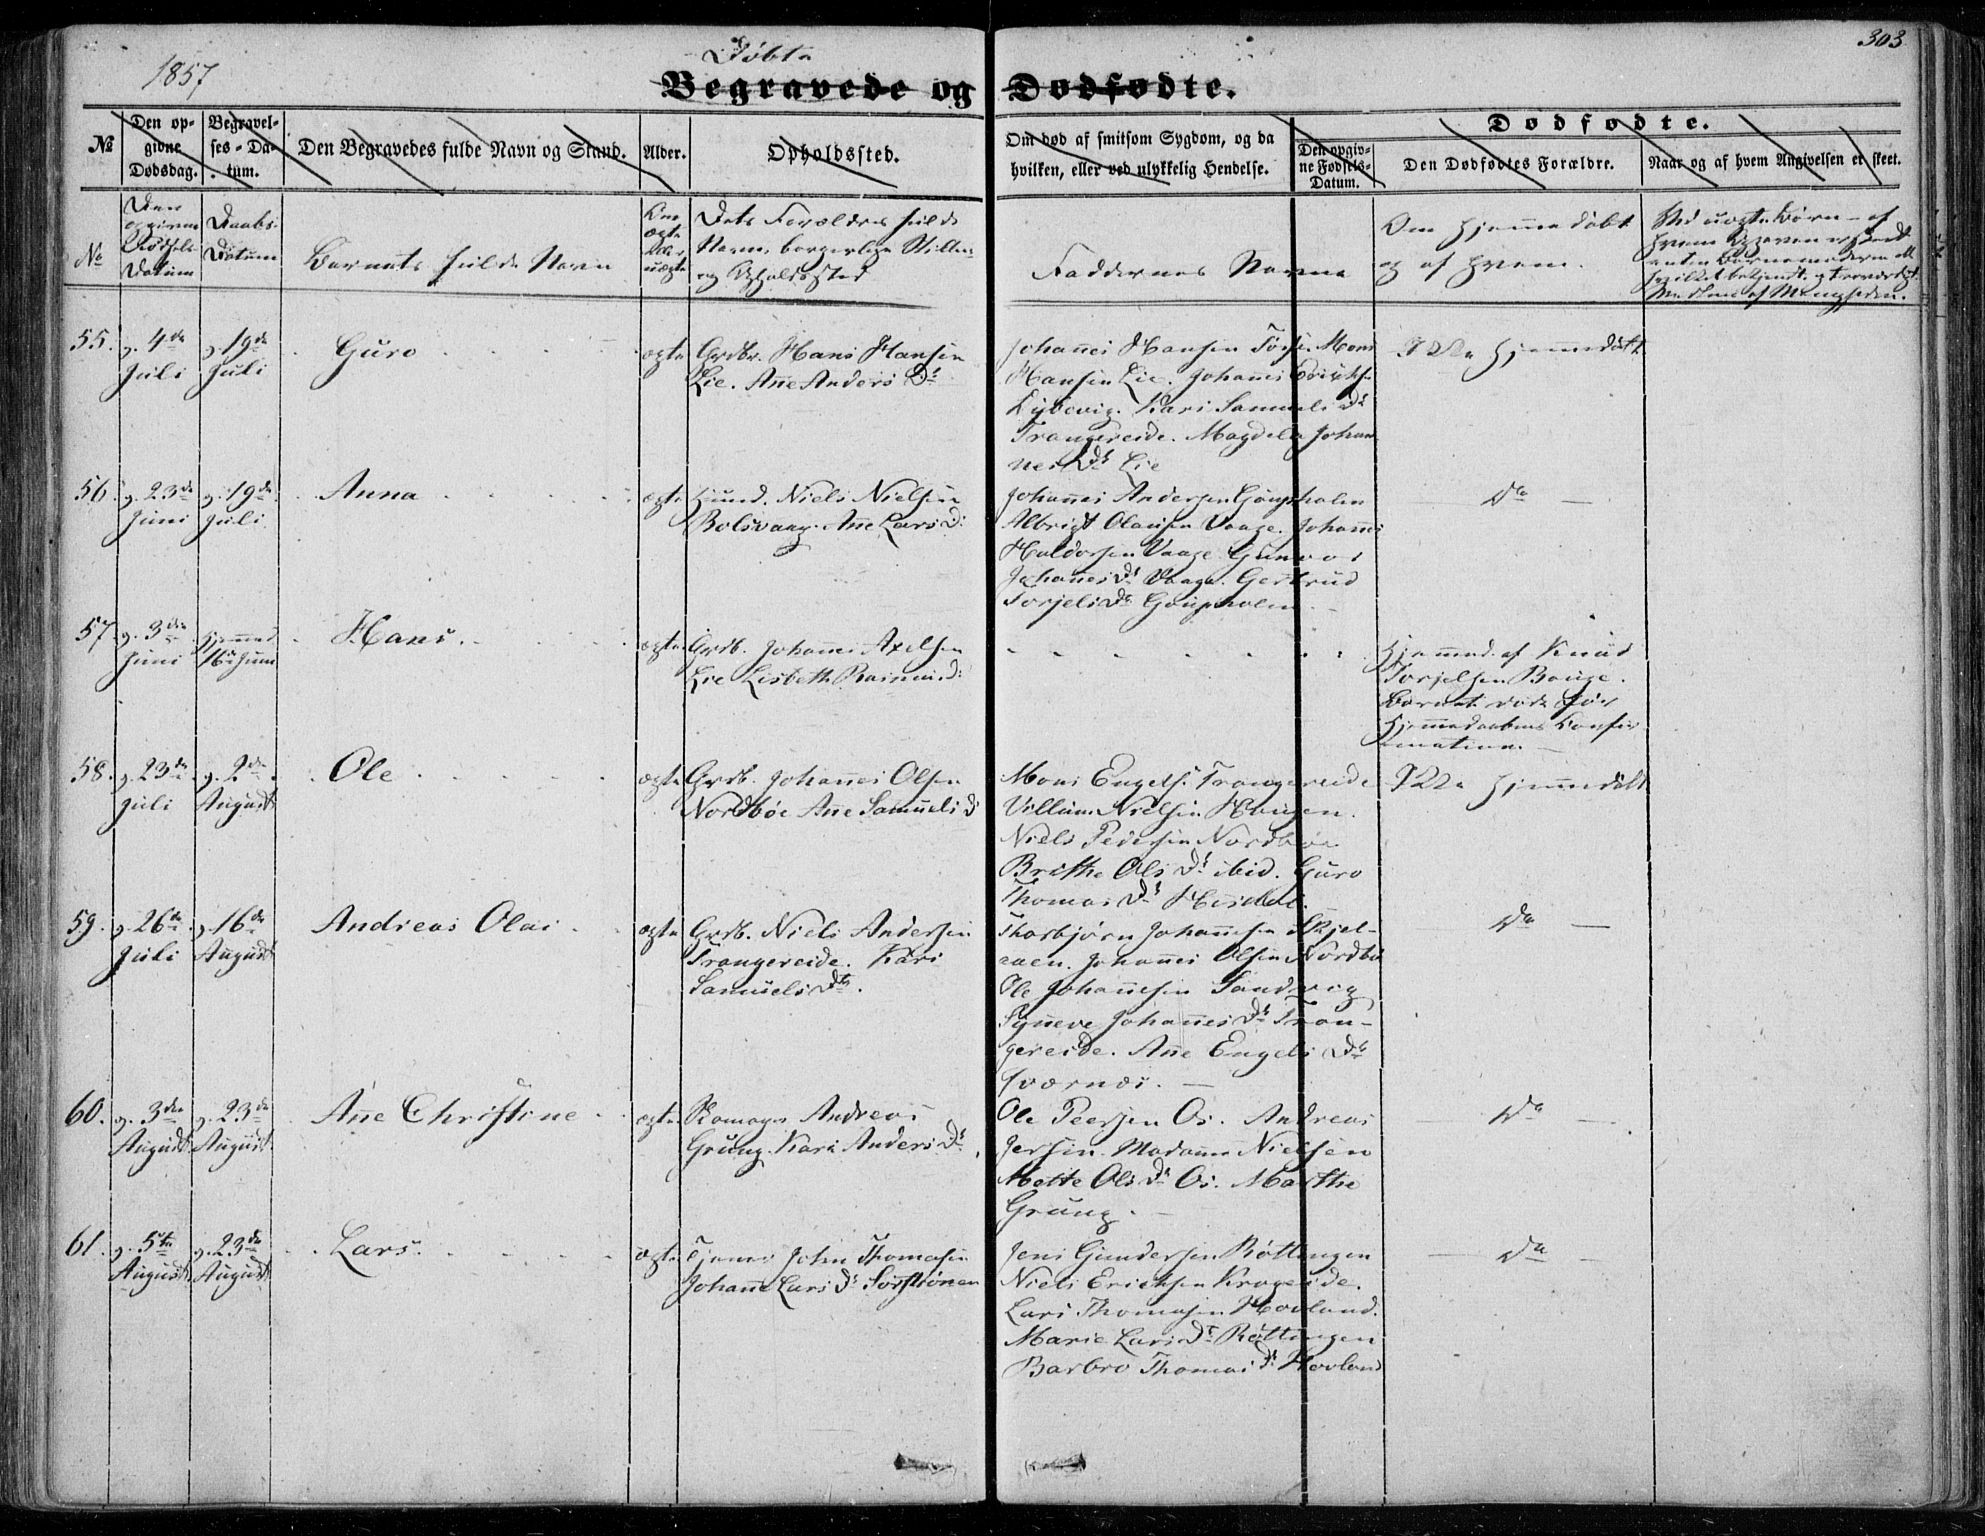 1857
Døbte
303
Begravede og Dødfødte.
№
Den op-
givne
Dødsdag.
Begravel-
ses-Da-
tum.
Den Begravedes fulde Navn og Stand.
Alder.
Opholdssted.
Om død af smitsom Sygdom, og da
hvilken, eller ved ulykkelig Hendelse.
Dødfødte.
Den opgiv-
ne Fødsels-
Datum.
Den Dødfødtes Forældre.
Naar og af hvem Angivelsen er skeet.
№
Den
opgivne
Fødsels
Datum
Daabs
Datum
Barnets fulde Navn
ægte
eller
uægte
Dets Forældres fulde
Navn, borgerlige Stilling
og Opholdssted
Faddernes Navne
Om hjemmedøbt
og af hvem.
Ved uægte Børn - af
55.
g. 4de
Juli
g. 19de
Juli
Guro
ægte
Grdbr. Hans Hansen
Lie. Ane Anders Dr
Johannes Hansen Mons
Hansen Lie. Johannes Eriks.
Kari Samuels Dr
Trangereide. Magdela Johan
nes Dr Lie
Ikke hjemmedøbt
56.
g. 23de
Juni
g. 19de
Juli
Anna
ægte
Huusmd. Niels Nielsen
Bolsvang. Ane Lars D:
Johannes Andersen
Albrigt Olausen Vaage. Johannes
Haldorsen Vaage. Gunvor
Johannes Dr Vaage. Gertrud
Torjels Dr
Do —
57.
g. 3die
Juni
Hjemmed
16de Juni
Hans.
ægte
Grdb. Johannes Axelsen
Lie Lisbeth Rasmus D:
Hjemmed. af Knud
Torjelsen Bouge.
Barnet døde før
Hjemmedaabens Konfir
mation. —
58.
g. 23de
Juli
g. 2den
August
Ole
ægte
Grdb. Johannes Olsen
Nordbøe Ane Samuels Dr
Mons Engels. Trangereide
Villum Nielsen Hougen.
Niels Pedersen Nordbøe
Brithe Ols Dr ibid. Guro
Thomas Dr
Ikke hjemmedøbt
59.
g. 26de
Juli
g. 16de
August
Andreas Olai
ægte
Grdb. Niels Andersen
Trangereide. Kari
Samuels Dr.
Thorbjørn Johannesen Skjel-
aaen. Johannes Olsen Nordbø
Ole Johannesen Sandvig
Synneve Johannes Dr Tran-
gereide. Ane Engels Dr
Qværnæs. —
Do —
60.
g. 3die
August
g. 23de
August
Ane Christine
ægte
Skomager Andreas
Grung. Kari Anders Dr
Ole Peersen Os. Andreas
Jersin. Madame Nielsen
Mette Ols Dr Os. Marthe
Grung. —
Do —
61.
g. 5te
August
g. 23de
August
Lars.
ægte
Tjener John Thomasen
Johanne Lars Dr Sørstrønen
Jens Gundersen Røttingen
Niels Ericksen Krogeide.
Lars Thomasen Hovland.
Marie Lars Dr Røttingen
Barbro Thomas Dr Hovland
Do —